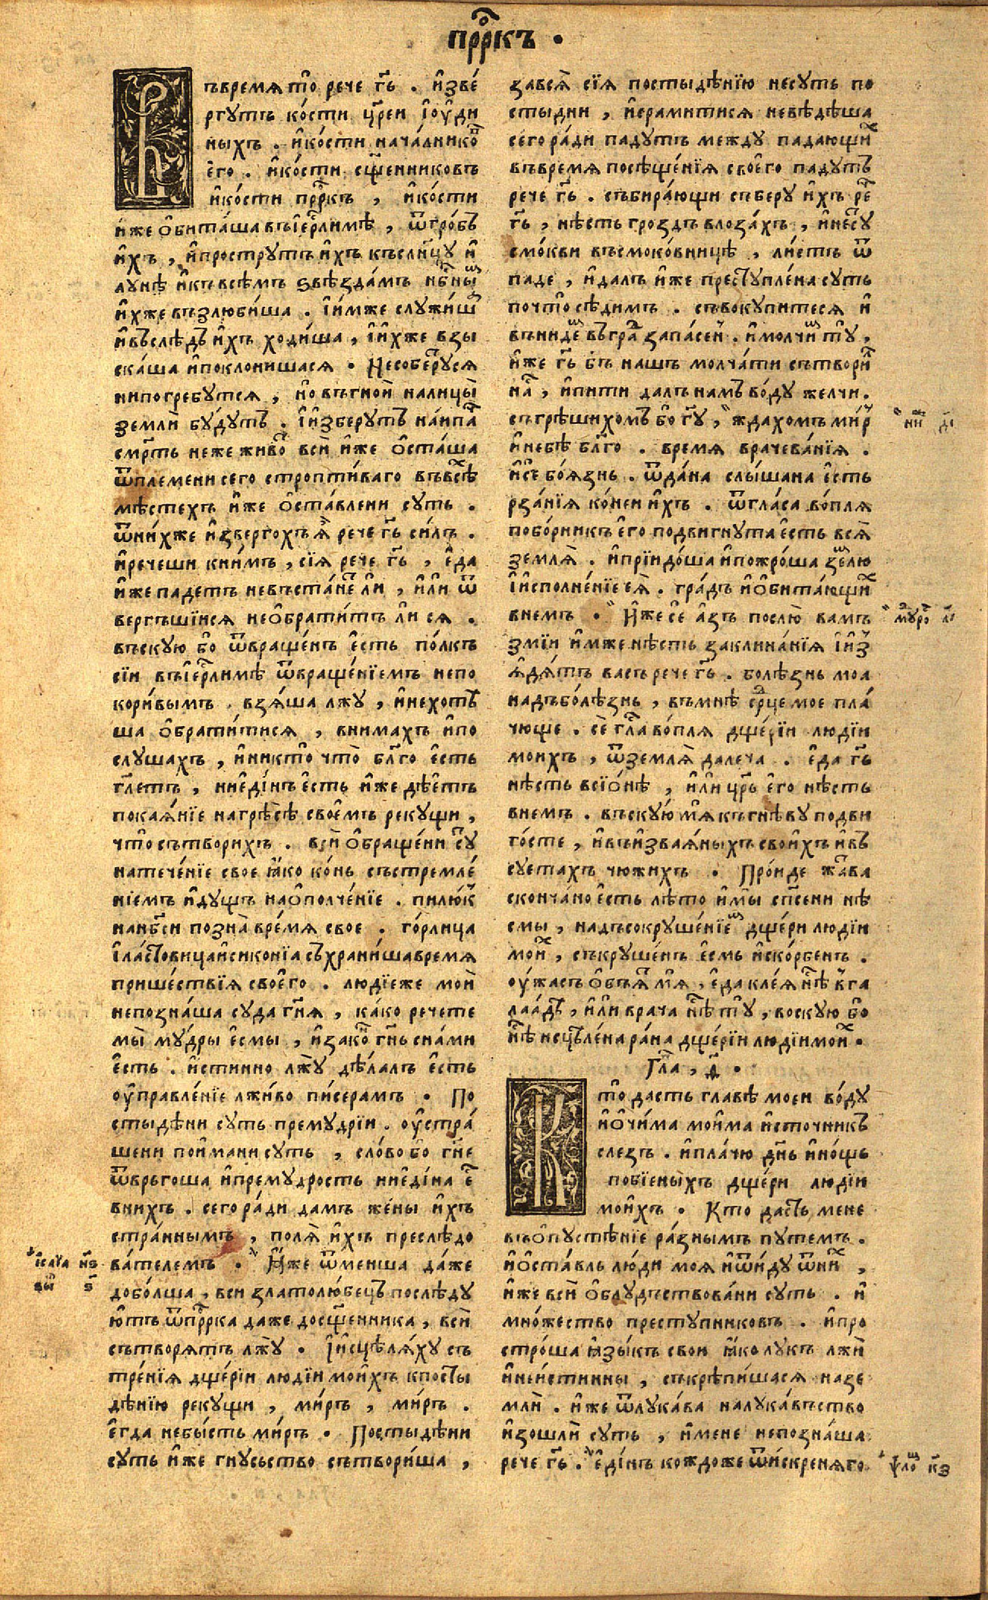 прⷪ҇ркъ ·
Въвремя то̀ рече гь҃ . и҆зве́
ргутъ ко́сти цр҃еи і҆оу҆ди
ныхъ . и҆ко́сти нача́лникоⷡ
е҆го . и҆ко́сти сщ҃енниковъ
и҆ко́сти прⷪ҇ркъ , и҆ко́сти
и҆же ѻ҆бита́ша въіе҆рⷭ҇лимѣ , ѿгро́бъ
и҆хъ , и҆прострутъ и҆хъ къслн҃цу и҆
лунѣ и҆къвсѣмъ ѕвѣзда́мъ нбⷭ҇ныⷨ
и҆хже възлюби́ша . і҆и҆мже служи́ша
и҆въслѣдъ и҆хъ ходи́ша , і҆и҆хже взы
ска́ша и҆поклони́шася · Несоберу́ся
нипогребутся , но въгно́и налицы̀
землѝ бу́дутъ . і҆и҆зберутъ на́ипаⷱ
смр҃ть неже живо́тъ всѝ и҆же ѻ҆ста́ша
ѿплемени сего стропти́ваго въвсѣⷯ
мѣ́стехъ и҆же ѻ҆ста́влени суть .
ѿни́хже и҆звергохъ ѧ҆̀ рече гь҃ си́лъ .
и҆речеши кни́мъ , сїя рече гь҃ , е҆да
и҆же падетъ невъстане́тъ ли , и҆ли ѿ
верг̾шїися необрати́тъ ли ся .
въскую бо ѿвраще́нъ е҆сть по́лкъ
сїи въіе҆рⷭ҇лимѣ ѿвраще́нїемъ непо
кори́вымъ . взя́ша лжу̀ , и҆нехотѣ
ша ѻ҆брати́тися , внима́хъ и҆по
слу́шахъ , и҆никто̀ что̀ бл҃го е҆сть
гл҃етъ , ние҆ди́нъ е҆сть и҆же дѣ́етъ
покая́нїе нагрѣ́сѣ свое́мъ рекущи ,
что̀ сътвори́хъ . всѝ ѻ҆браще́ни сѹ
натече́нїе свое ꙗ҆́ко ко́нь състремле́
нїемъ и҆дущъ наѻ҆полче́нїе . пилюкъ
нанб҃си позна̀ вре́мя свое . го́рлица
і҆ла́стовица и҆сикони́а съхрани́ша время
прише́ствїя своего̀ . лю́дїеже моѝ
непозна́ша суда гн҃я , ка́ко речете
мы̀ му́дры е҆смы , и҆зако́нъ гн҃ь сна́ми
е҆сть . и҆стинно лжу̀ дѣ́лалъ е҆сть
оу҆правле́нїе лжи́во пи́серамъ · По
стыдѣни суть прему́дрїи . оу҆стра́
шени пои҆мани суть , сло́во бо гн҃е
ѿврьгоша и҆прему́дрость ние҆ди́на е҆ⷭ҇
вни́хъ . сего ра́ди дамъ жены̀ и҆хъ
стра́ннымъ , поля̀ и҆хъ преслѣдо
ва́телемъ · И҆же ѿменша да́же
добо́лша , вси златолюбе́цъ послѣду
ютъ ѿпрⷪ҇рка даже досщ҃енника , вси
сътворя́тъ лжу̀ . І҆и҆сцѣля́ху съ
тре́нїя дще́рїи людїи мои́хъ кпосты
дѣ́нїю рекущи , ми́ръ , ми́ръ .
е҆гда небы́сть ми́ръ · Постыдѣни
суть и҆же гнусьство сътвори́ша ,
и҆са́їа нѕ
ѕ҃
зався̀ сїя постыдѣ́нїю несуть по
стыдни , и҆срами́тися невѣ́дѣша
сего ра́ди падутъ между падающиⷯ
въвре́мя посѣще́нїя своего̀ паду́тъ
рече гь҃ . събира́ющи съберу и҆хъ реⷱ
гь҃ , нѣсть гроздъ влоза́хъ , и҆нѣсу
смо́кви въсмоко́вницѣ , ли́стъ ѿ
паде , и҆далъ и҆же преступле́на суть
почто̀ сѣди́мъ . съвокупи́теся и҆
въни́деⷨ въгра́дъ запа́сеи . и҆молчи́мъ тѹ̀ ,
и҆же гь҃ бг҃ъ нашъ молча́ти сътвори
на́съ , и҆пи́ти далъ намъ во́ду желчи .
съгрѣши́хомъ бо гѹ҃ , жда́хомъ ми́ръ
и҆небѣ бл҃го . время врачева́нїя .
и҆се боя́знь . ѿда́на слы́шана е҆сть
рза́нїя ко́неи и҆хъ . ѿгла́са во́пля
побо́рникъ е҆го подви́гнута е҆сть вся̀
земля̀ . и҆прїидо́ша и҆пожро́ша зе́млю
і҆и҆сполне́нїе е҆я̀ . гра́дъ и҆ѻ҆бита́ющиⷯ
внемъ . И҆же се а҆зъ послю̀ вамъ
змїи и҆мже нѣсть заклина́нїя
ѧ҆дя́тъ васъ рече гь҃ . болѣ́знь моа
надъбо́лѣзнь , въмнѣ ср҃це мое пла́
чюще . се гла́съ во́пля дще́рїи людїи
моихъ , ѿземля̀ дале́ча . е҆да гь҃
нѣсть всїо́нѣ , и҆ли цр҃ь е҆го нѣсть
внемъ . въскую мя къгнѣ́ву подви
го́сте , и҆въи҆звая́ныхъ свои́хъ и҆въ
суетахъ чю́жихъ · Про́иде жа́тва
сконча́но е҆сть лѣ́то и҆мы̀ сп҃сени нѣ
смы , надъсокруше́нїеⷨ дще́ри людїи
мои́хъ , съкруше́нъ е҆смь и҆ско́рбенъ .
оу҆́жасъ ѻ҆бъя́тъ мя , е҆да кле́я нѣ́сть вга
лаа́дъ , и҆ли врача нѣ́сть тѹ , воскую бо
нѣ́сть и҆сцѣле́на ра́на дще́рїи людїи мои́хъ ·
Гла , д҃ ·
Кто да́сть главѣ̀ моеи во́ду
и҆ѻ҆чи́ма мои́ма и҆сто́чникъ
сле́зъ . и҆пла́чю дн҃ь и҆но́щь
побїены́хъ дще́ри людїи
мои́хъ · Кто да́стъ мене
въѻ҆пустѣ́нїе ра́знымъ путемъ .
и҆ѻ҆ста́вль лю́ди моя и҆ѿи́ду ѿниⷯ ,
и҆же вси ѻ҆блудьствова́ни суть . и҆
мно́жество престу́пниковъ . и҆про
стро́ша ꙗ҆зы́къ свои ꙗ҆́ко лукъ лжѝ
и҆неи́стинны , съкрѣпи́шася назе
млѝ . и҆же ѿлука́ва налука́вьство
и҆зошлѝ суть , и҆мене непозна́ша
рече гь҃ . е҆ди́нъ кождоже ѿи҆скреняго